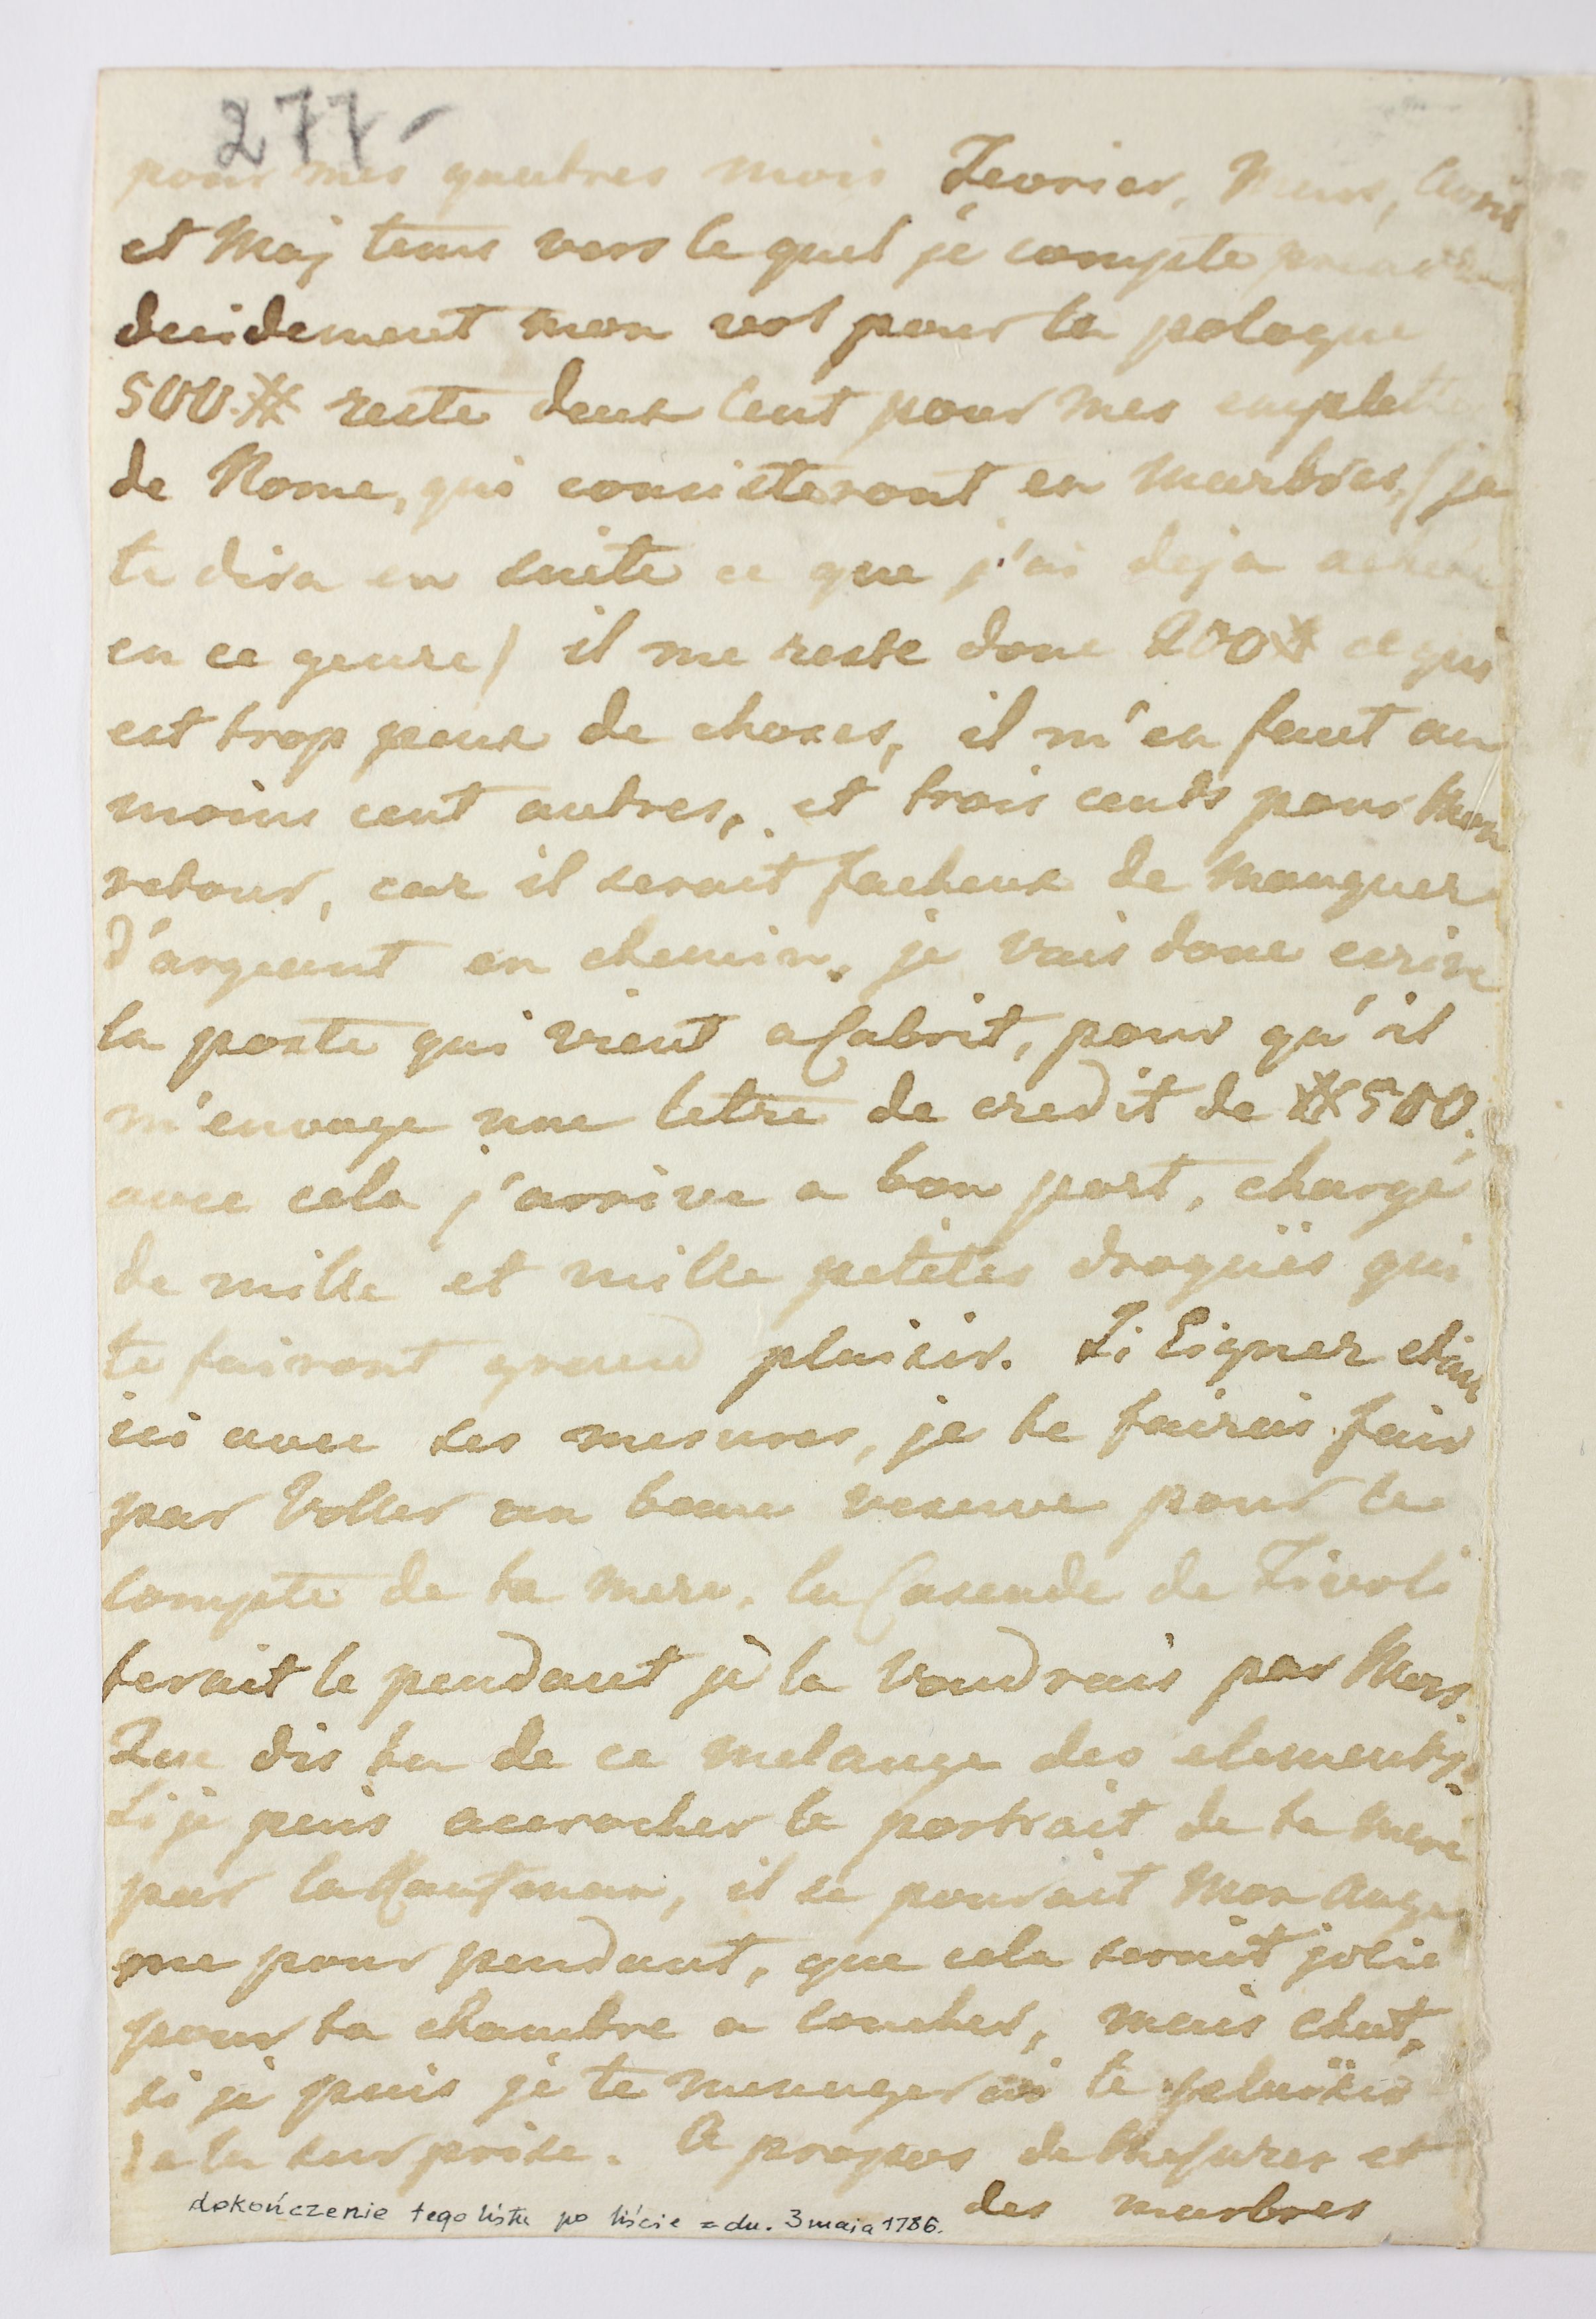 277
pour mes quatres mois Fevrier, Mars, Avril
et Maj tems vers le quel je compte prendre
decidement mon vol pour la pologne
500 # reste deux Cent pour mes emplettes
de Rome, qui consisteront en marbres, (je
te dira en suite ce que j'ai deja acheté
en ce genre) il me reste donc 200 # ce qui
est trop peux de choses, il m'en faut au
moins cent autres, et trois cents pour Mon
retour, car il serait facheux de Manquer
d'argeant en chemin. je vais donc ecrire
la poste qui vient a Cabrit, pour qu'il
m'envoye une letre de credit de # 500.
avec cela j'arrive a bon port, chargé
de mille et mille petites drogües qui
te fairont grand plaisir. Si Eigner etait
ici avec ses mesures, je te fairais fair
par Voller un beau vesuve pour le
Compte de ta mere. la Cascade de Tivoli
ferait le pendant je la voudrais par Mors.
Que dis tu de ce melange des elements.
Si je peus accrocher le portrait de ta mere
par la Kaufman, il se pourait Mon Ange
me pour pendant, que cela serait jolie
pour ta chambre a coucher, mais chut,
si je puis je te menagerai le plaisir
de la surprise. A propos de Mesures et
des marbres
dokończenie tego listu po liście z dn. 3 maja 1786.